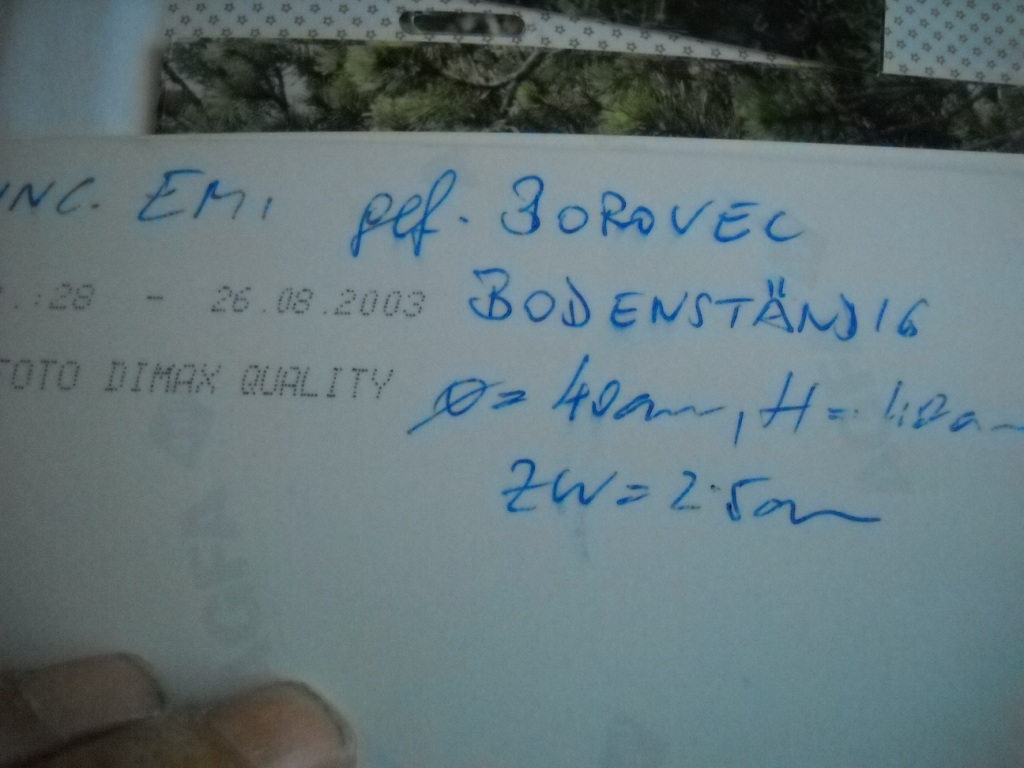 UNC. EMI gef. BOROVEC
:28 - 26.08.2003 BODENSTÄNDIG
FOTO DIMAX QUALITY Ø= 40cm, H= 40cm
ZW= 2.5cm